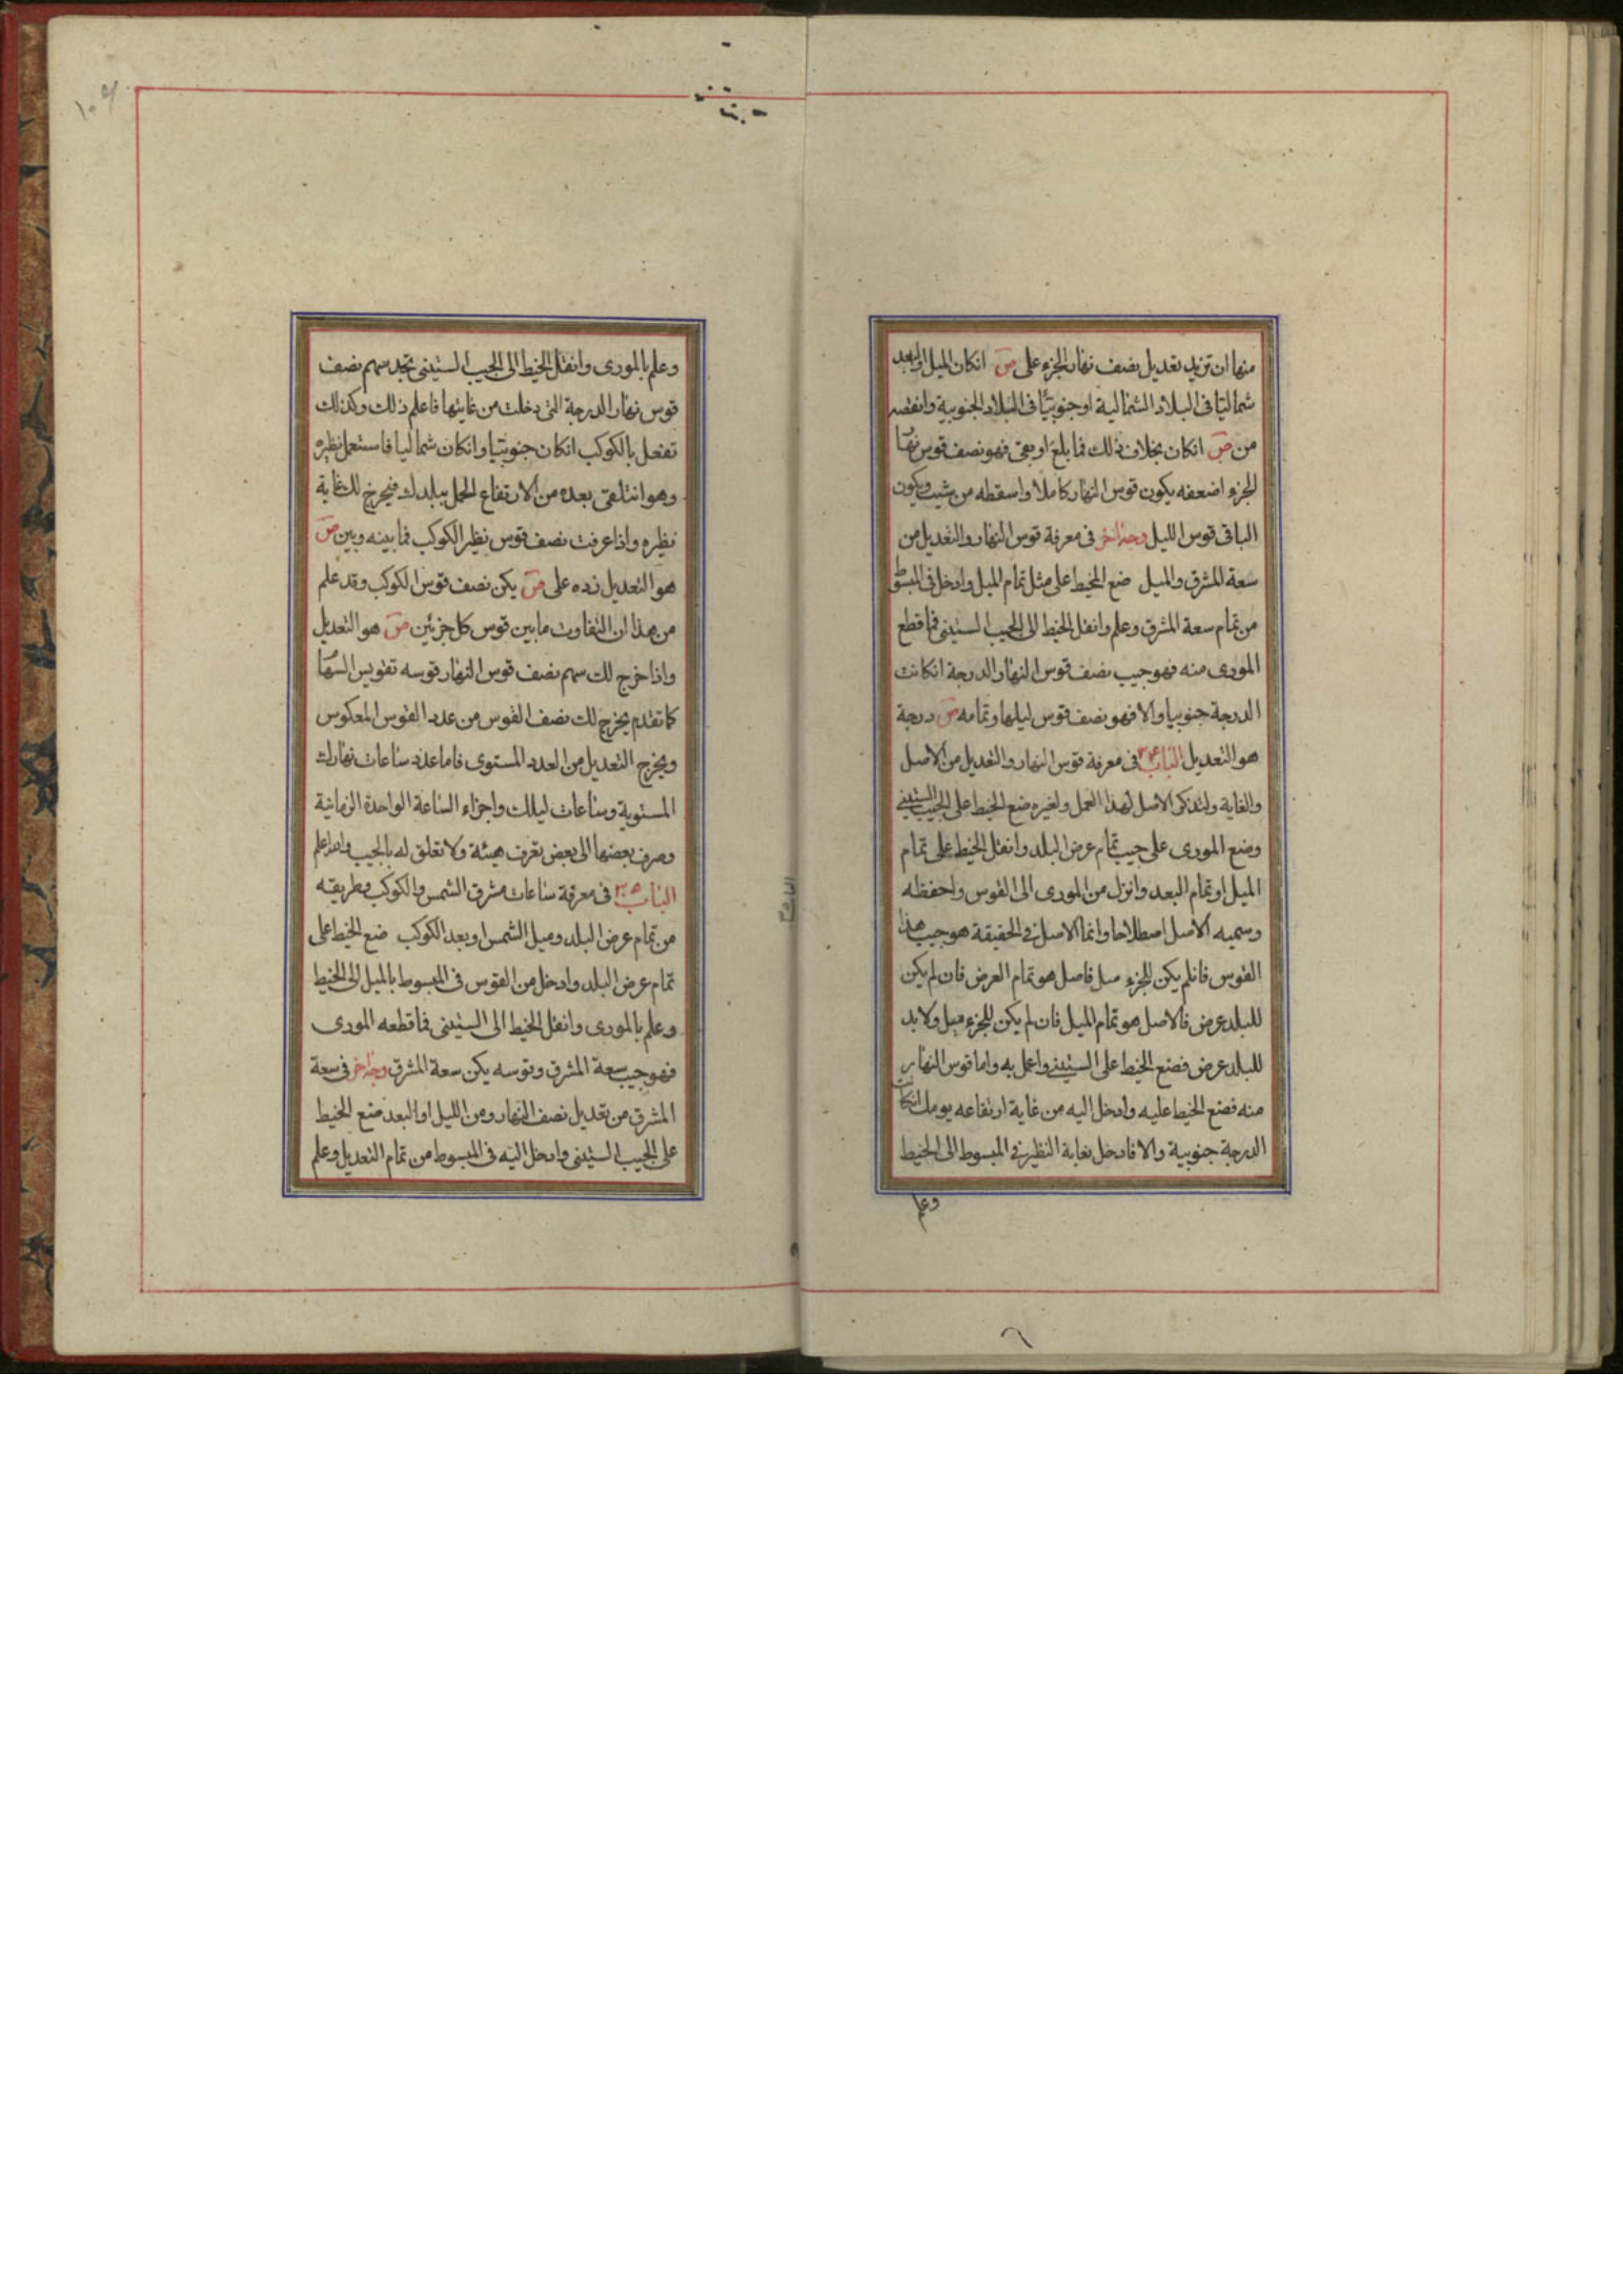 منها ان تزيد تعديل نصف نهار الجزء على ص انكان الميل او البعد
شماليا فى البلاد الشمالية او جنوبيا فى البلاد الجنوبية وانقصه
من ص انكان بخلاف ذلك فما بلغ او بقى فهو نصف قوس نهار
الجزء اضعفه يكون قوس النهار كاملا واسقطه من شيب ويكون
الباقى قوس الليل وجه اخر فى معرفة قوس النهار والتعديل من
سعة المشرق والميل ضع الخيط على مثل تمام الميل وادخل فى المبسوط
من تمام سعة المشرق وعلم وانقل الخيط الى الجيب الستينى فما قطع
المورى منه فهو جيب نصف قوس النهار الدرجة انكانت
الدرجة جنوبيا والا فهو نصف قوس ليلها وتمامه ص درجة
هو التعديل الباب ٣٤ فى معرفة قوس النهار والتعديل من الاصل
والغاية ولتذكر الاصل لهذا العمل ولغيره ضع الخيط على الجيب الستينى
وضع المورى على جيب تمام عرض البلد وانقل الخيط على تمام
الميل او تمام البعد وانزل من المورى الى القوس واحفظه
وسميه الاصل اصطلاحا وانما الاصل فى الحقيقة هو جيب هذا
القوس فانلم يكن للجزء ميل فاصل هو تمام العرض فان لم يكن
للبلد عرض فالاصل هو تمام الميل فان لم يكن للجزء ميل ولا بد
للبلد عرض فضع الخيط على الستينى واعمل به واما قوس النهار
منه فضع الخيط عليه وادخل اليه من غاية ارتفاعه يومك انكانت
الدرجة جنوبية والا فادخل بغاية النظير فى المبسوط الى الخيط
وعلم
١٠٤
وعلم بالمورى وانقل الخيط الى الجيب الستينى تجد سهم نصف
قوس نهار الدرجة التى دخلت من غايتها فاعلم ذلك وكذلك
تفعل بالكوكب انكان جنوبيا وانكان شماليا فاستعمل نظيره
وهو انتلقى بعده من الارتفاع الحمل ببلدك فيخرج لك غاية
نظيره واذا عرفت نصف قوس نظير الكوكب فما بينه وبين ص
هو التعديل زده على ص يكن نصف قوس الكوكب وقد علم
من هذا ان التفاوت ما بين قوس كل جزئين ص هو التعديل
واذا خرج لك سهم نصف قوس النهار قوسه تقويس السهام
كما تقدم يخرج لك نصف القوس من عدد القوس المعكوس
ويخرج التعديل من العدد المستوى فاما عدد ساعات نهارك
المستوية وساعات ليلك واجزاء الساعة الواحدة الزمانية
وصرف بعضها الى بعض تعرف هيئة ولا تعلق له بالجيب والله اعلم
الباب ٣٥ فى معرفة ساعات مشرق الشمس والكوكب وطريقه
من تمام عرض البلد وميل الشمس او بعد الكوكب ضع الخيط على
تمام عرض البلد وادخل من القوس فى المبسوط بالميل الى الخيط
وعلم بالمورى وانقل الخيط الى الستينى فما قطعه المورى
فهو جيب سعة المشرق وقوسه يكن سعة المشرق وجه اخر فى سعة
المشرق من تعديل نصف النهار ومن الليل او البعد ضع الخيط
على الجيب الستينى وادخل اليه فى المبسوط من تمام التعديل وعلم